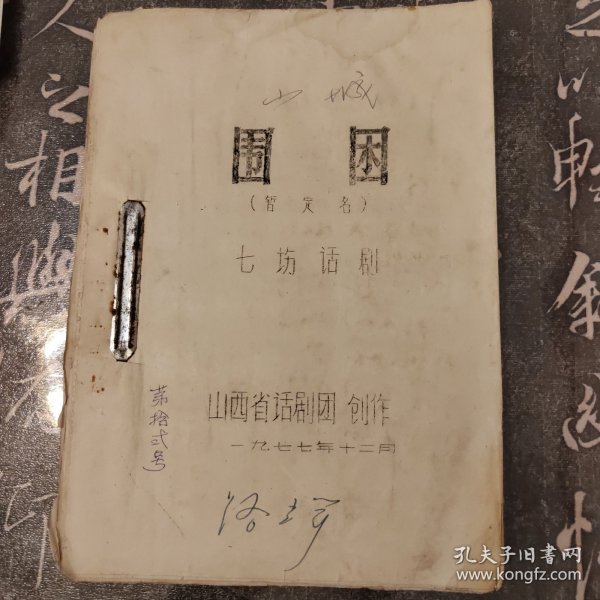 山城
围困
（暂定名）
七场话剧
山西省话剧团 创作
一九七七年十二月
第拾弍号
人之相與
印
孔夫子旧书网
www.kongfz.com